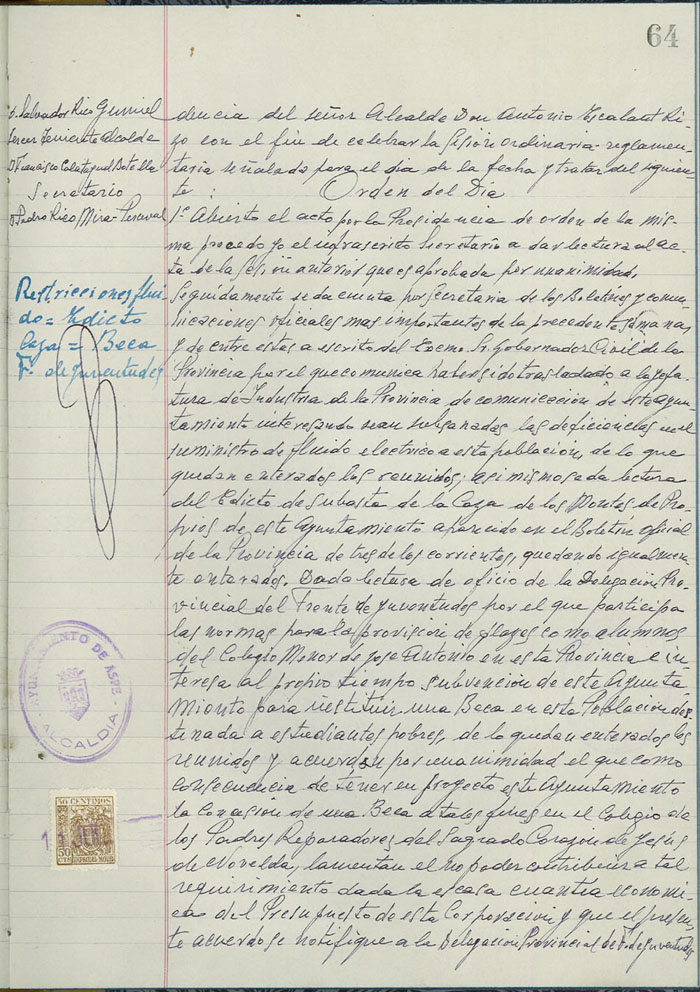 64
D. Salvador Rico Gumiel
Tercer Teniente Alcalde
D. Francisco Calatayud Botella
Secretario
D Pedro Rico Mira-Perceval
Restricciones flui-
do = Edicto
Caza = Beca
F. de Juventudes
dencia del señor Alcalde Don Antonio Escalant Ri-
zo con el fin de celebrar la Sesión ordinaria-reglamen-
taria señalada para el dia de la fecha y tratar del siguien-
te : Orden del Dia
1º Abierto el acto por la Presidencia de orden de la mis-
ma procedo yo el infrascrito Secretario a dar lectura al ac-
ta de la Sesión anterior que es aprobada por unanimidad.
Seguidamente se da cuenta por Secretaria de los Boletines y comu-
nicaciones oficiales mas importantes de la precedente semanas
y de entre estas a escrito del Excmo. Sr. Gobernador Civil de la
Provincia por el que comunica haber sido trasladado a la Jefa
tura de Industria de la Provincia de comunicación de este Ayun-
tamiento interesando sean subsanadas las deficiencias en el
suministro de fluido electrico a esta población, de lo que
quedan enterados los reunidos; asi mismo se da lectura
del Edicto de subasta de la Caza de los Montes de Pro-
pios de este Ayuntamiento aparecido en el Boletín oficial
de la Provincia de tres de los corrientes, quedando igualmen-
te enterados. Dada lectura de oficio de la Delegación Pro-
vincial del Frente de Juventudes por el que participa
las normas para la provision de plazas como alumnos
del Colegio Menor de Jose Antonio en esta Provincia e in-
teresa al propio tiempo subvención de este Ayunta-
miento para instituir una Beca en esta Poblacion des-
tinada a estudiantes pobres, de lo quedan enterados los
reunidos y acuerdan por unanimidad el que como
consecuencia de tener en proyecto este Ayuntamiento
la concesion de una Beca a tales fines en el Colegio de
los Padres Reparadores del Sagrado Corazón de Jesús
de Novelda, lamentan el no poder contribuir a tal
requirimiento dada la escasa cuantia economi-
ca del Presupuesto de esta Corporacion y que el presen-
te acuerdo se notifique a la Delegación Provincial de F. de Juventudes
AYUNTAMIENTO DE ASPE
ALCALDIA
50 CENTIMOS
50 CTS
ESPECIAL MOVIL